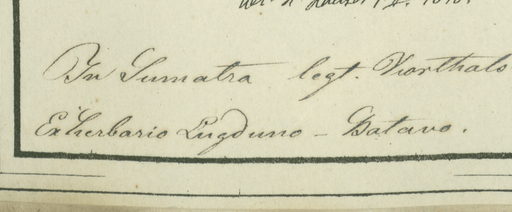 In Sumatra legt. Korthals
Ex herbario Lugduno - Batavo.